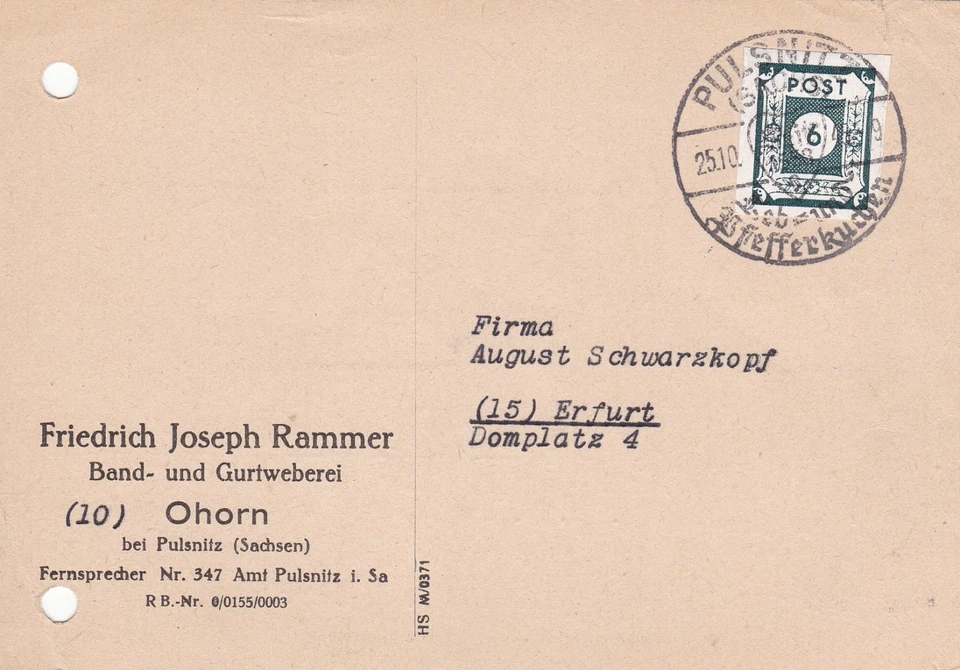 PULSNITZ
POST
6
25.10.
9
Pfefferkuchen
Firma
August Schwarzkopf
(15) Erfurt
Domplatz 4
Friedrich Joseph Rammer
Band- und Gurtweberei
(10) Ohorn
bei Pulsnitz (Sachsen)
Fernsprecher Nr. 347 Amt Pulsnitz i. Sa
RB.-Nr. 0/0155/0003
HS M/0371